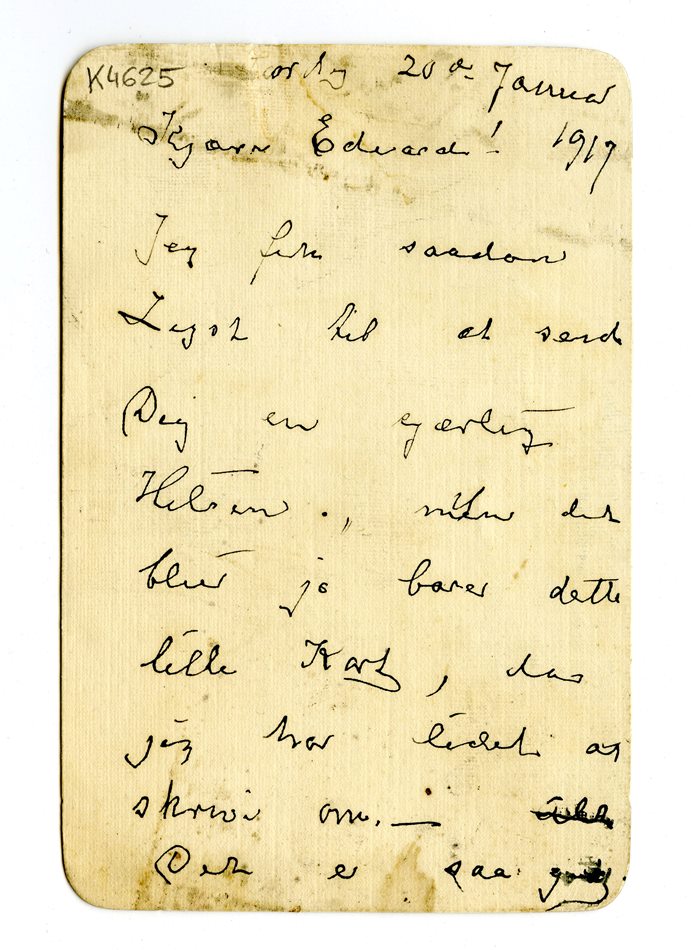 K4625 20 de Januar
Kjære Edvard! 1917
Jeg fik saadan
Lyst til at send
Dig en
Hilsen., men det
blier jo barer dette
lille Kort, da
jeg har lidet at
skrive om. —
Det er saa